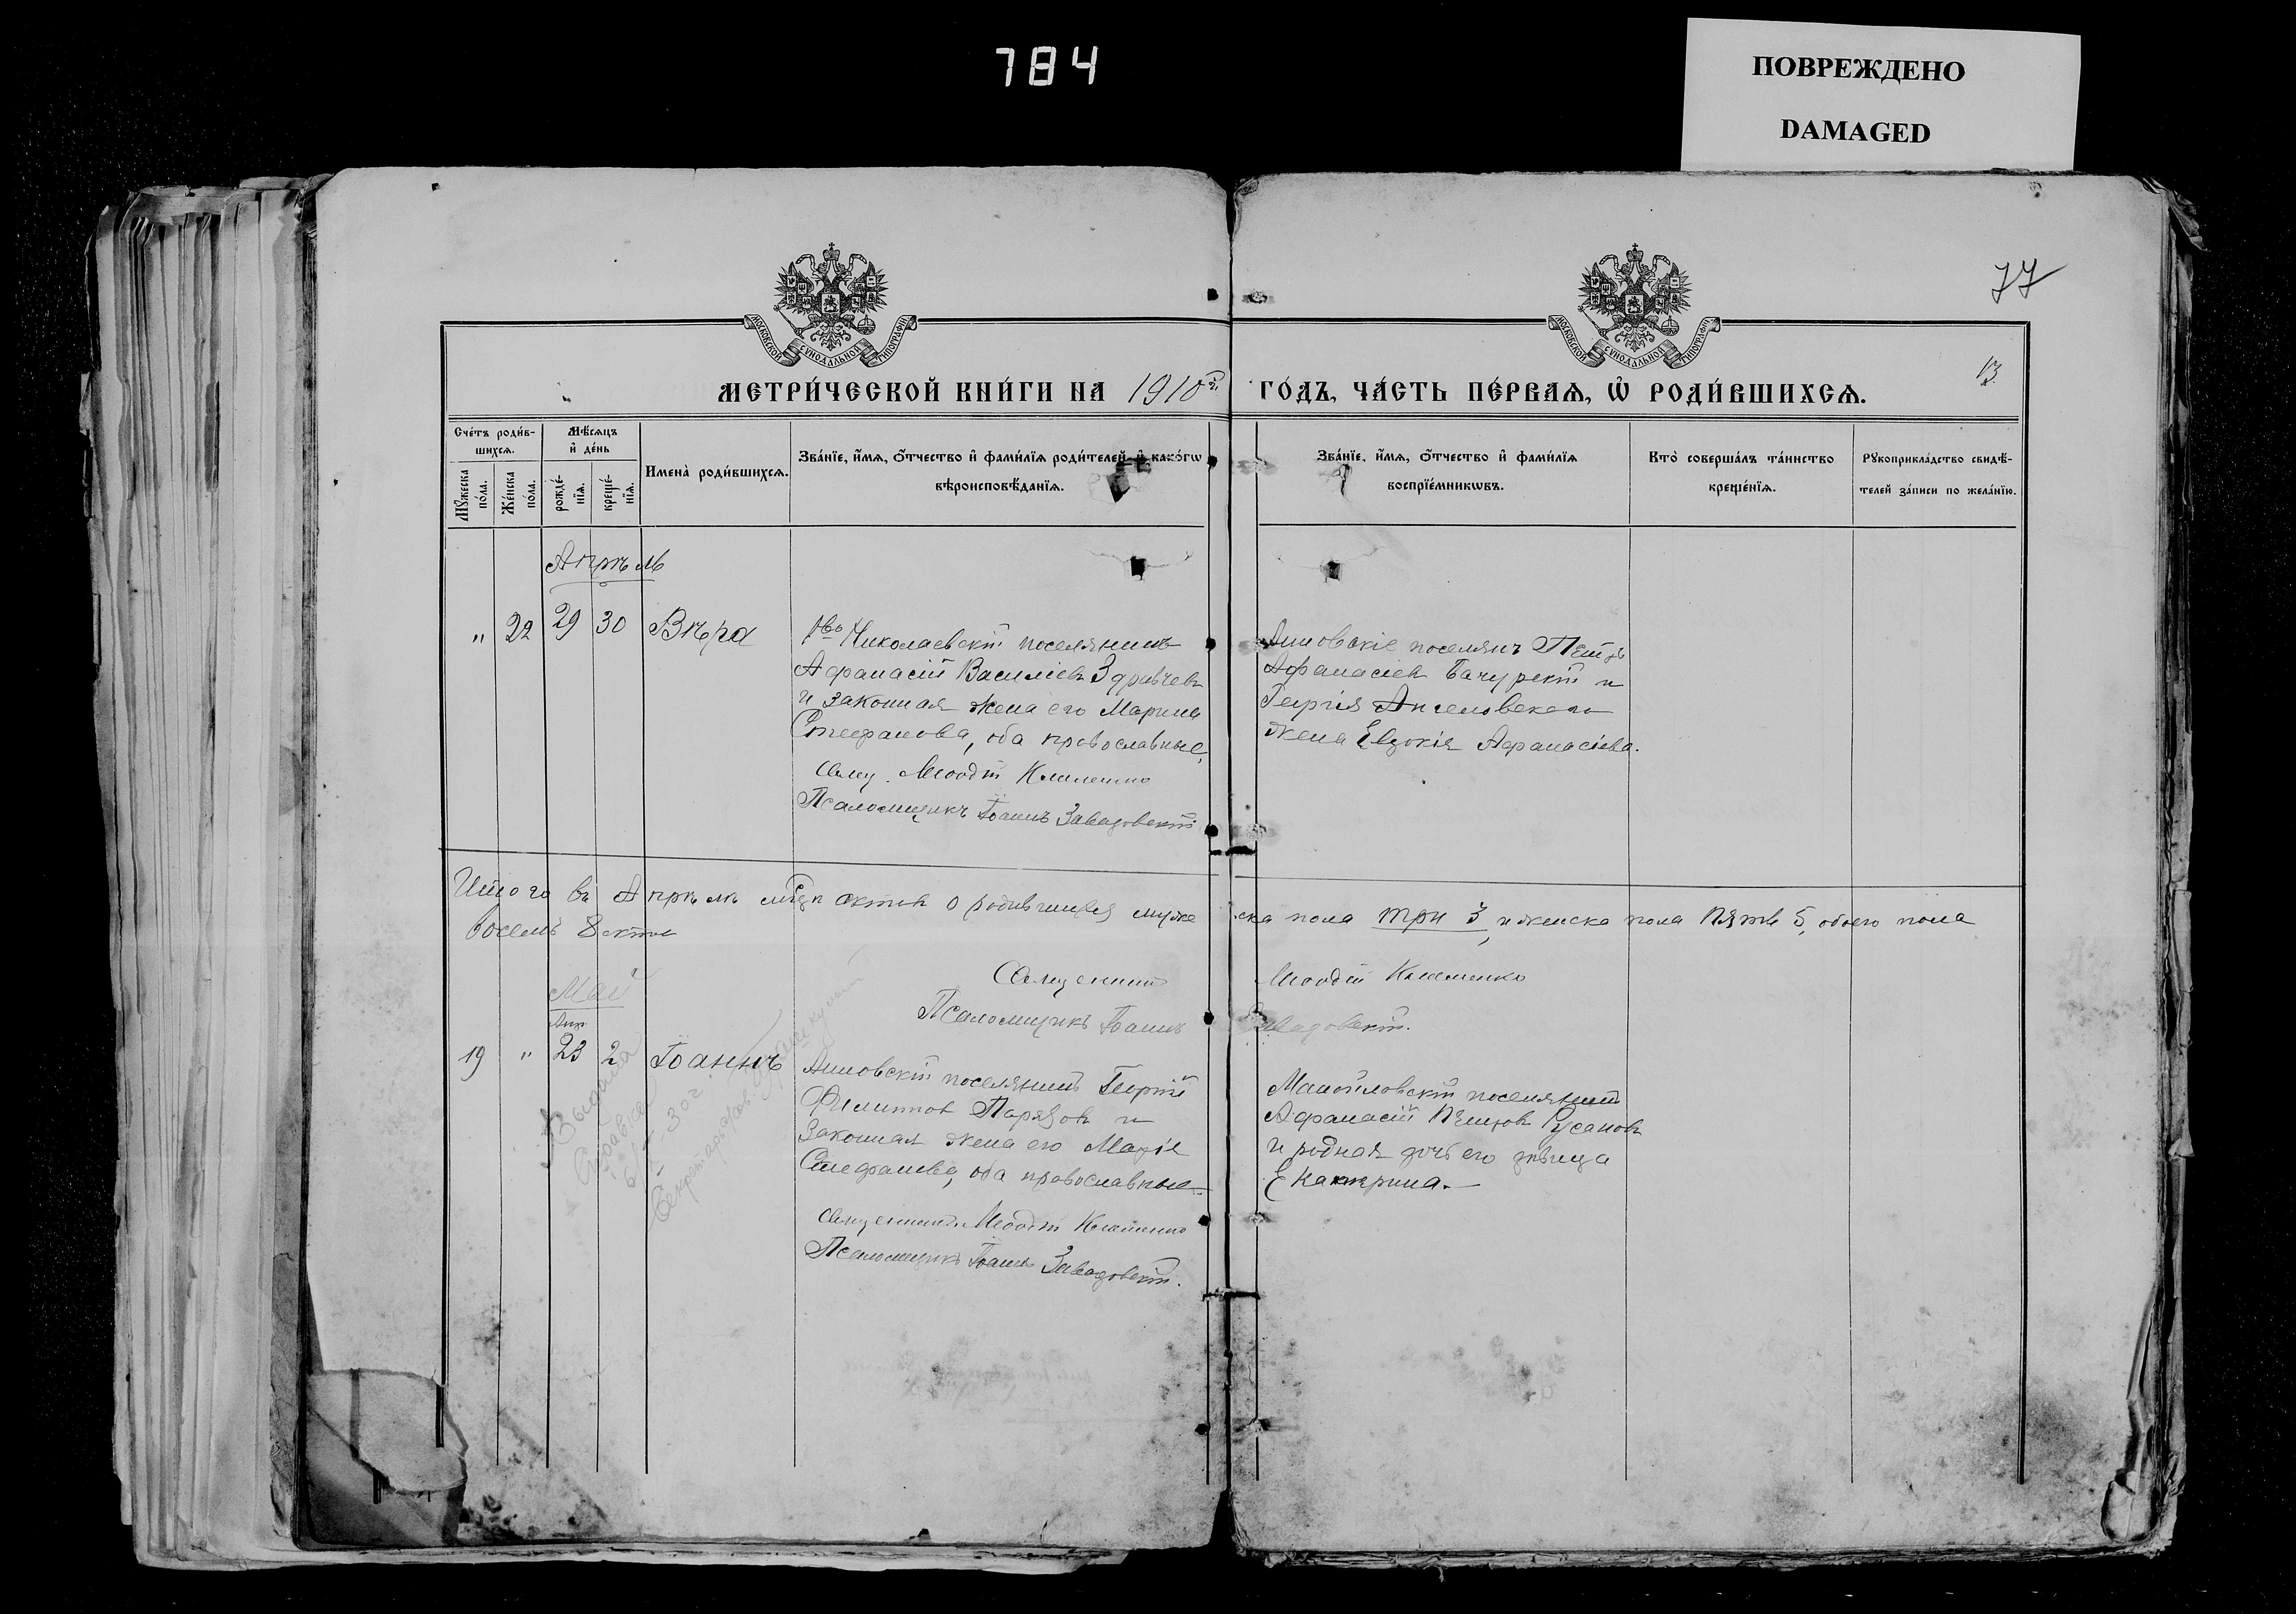 784
ПОВРЕЖДЕНО
DAMAGED
77
13.
МОСКОВСКОЙ СѴНОДАЛЬНОЙ ТИПОГРАФІИ
МОСКОВСКОЙ СѴНОДАЛЬНОЙ ТИПОГРАФІИ
МЕТРИ́ЧЕСКОЙ КНИ́ГИ НА 1910 ГО́ДЪ, ЧА́СТЬ ПЕ́РВАЯ, Ѡ РОДИ́ВШИХСѦ.
Сче́тъ роди́в-
шихсѧ.
Мꙋ́жеска по́ла.
Же́нска по́ла.
Мѣ́сѧцъ
и҆ де́нь
рожде́-
нїѧ.
креще́-
нїѧ.
Имена̀ роди́вшихсѧ.
Зва́нїе, и҆́мѧ, ѻ҆́тчество и҆ фами́лїѧ роди́телей, и҆ како́гѡ
вѣроисповѣ́данїѧ.
Зва́нїе, и҆́мѧ, ѻ҆́тчество и҆ фами́лїѧ
воспрїе́мникѡвъ.
Кто̀ соверша́лъ та́инство
креще́нїѧ.
Рꙋкоприкла́дство свидѣ́-
телей за́писи по жела́нїю.
Апрѣль
" 22 29 30 Вѣра
Николаевскій поселянинъ
Афанасій Василіевъ Здравчевъ
и законная жена его Марина
Стефанова, оба православные.
Мѳодій Клименко
Псаломщикъ Іоаннъ Завадовскій
поселянъ Петръ
Афанасіевъ и
Георгія Ангеловскаго
жена Евдокія Афанасіева.
Итого въ Апрѣлѣ мѣсяцѣ актовъ о родившихся мужеска пола три 3, и женска пола пять 5, обоего пола
восемь 8 актовъ
Май
Священникъ Мѳодій Клименко
Псаломщикъ Іоаннъ Завадовскій.
Апр
19 " 23 2 Іоаннъ
поселянинъ Георгій
Филиппов и
законная жена его Марія
Стефанова, оба православные.
Священникъ Мѳодій Клименко
Псаломщикъ Іоаннъ Завадовскій.
Манойловскій поселянинъ
Афанасій Петровъ Русановъ
и родная дочь его дѣвица
Екатерина.
Выдана
справка